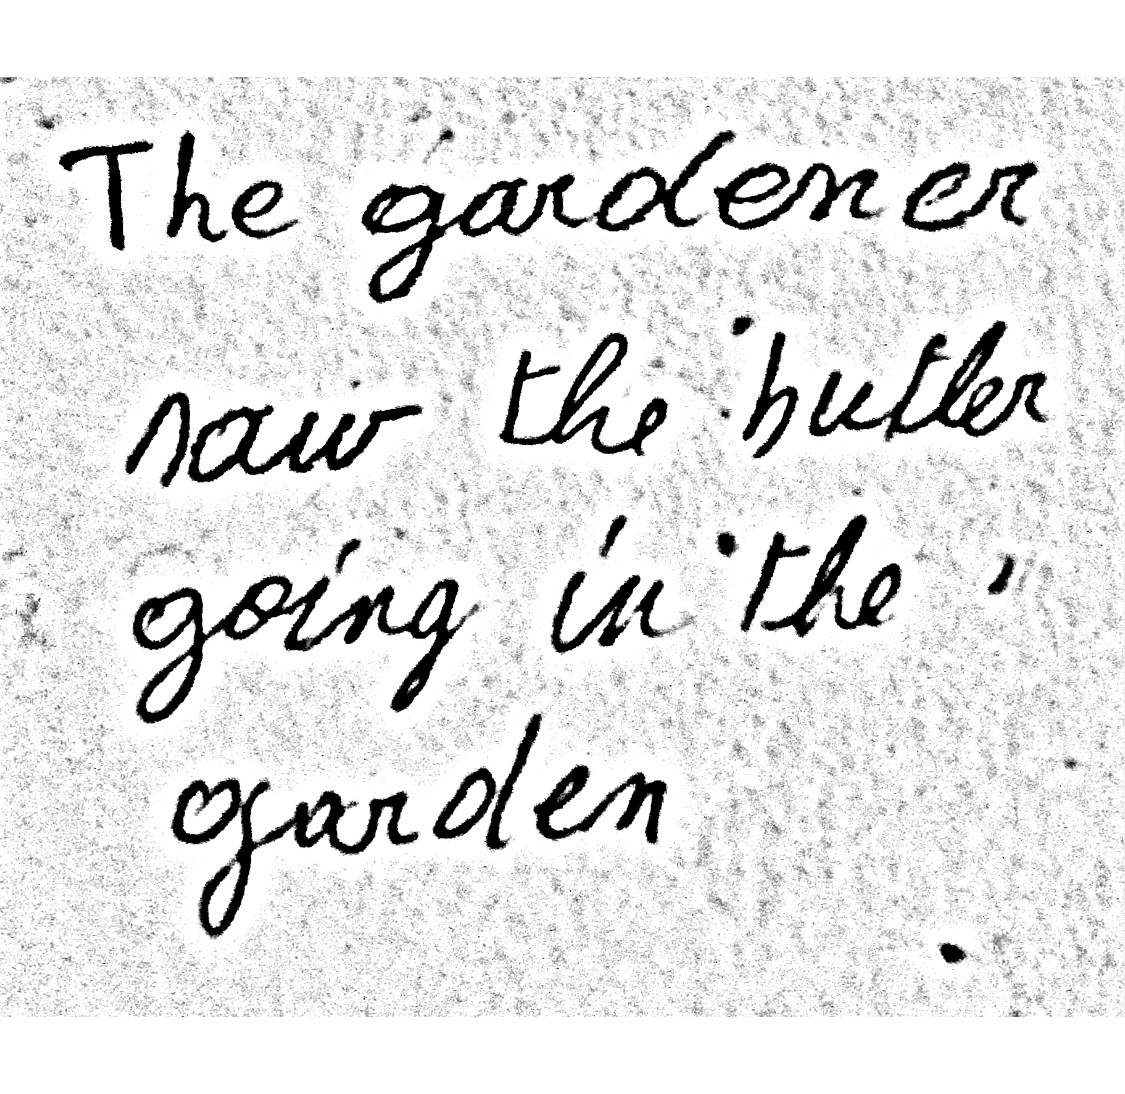 The gardener
saw the butler
going in the
garden